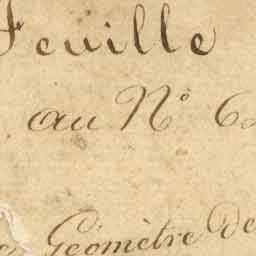 Feuille
au N° 6
Géomètre de